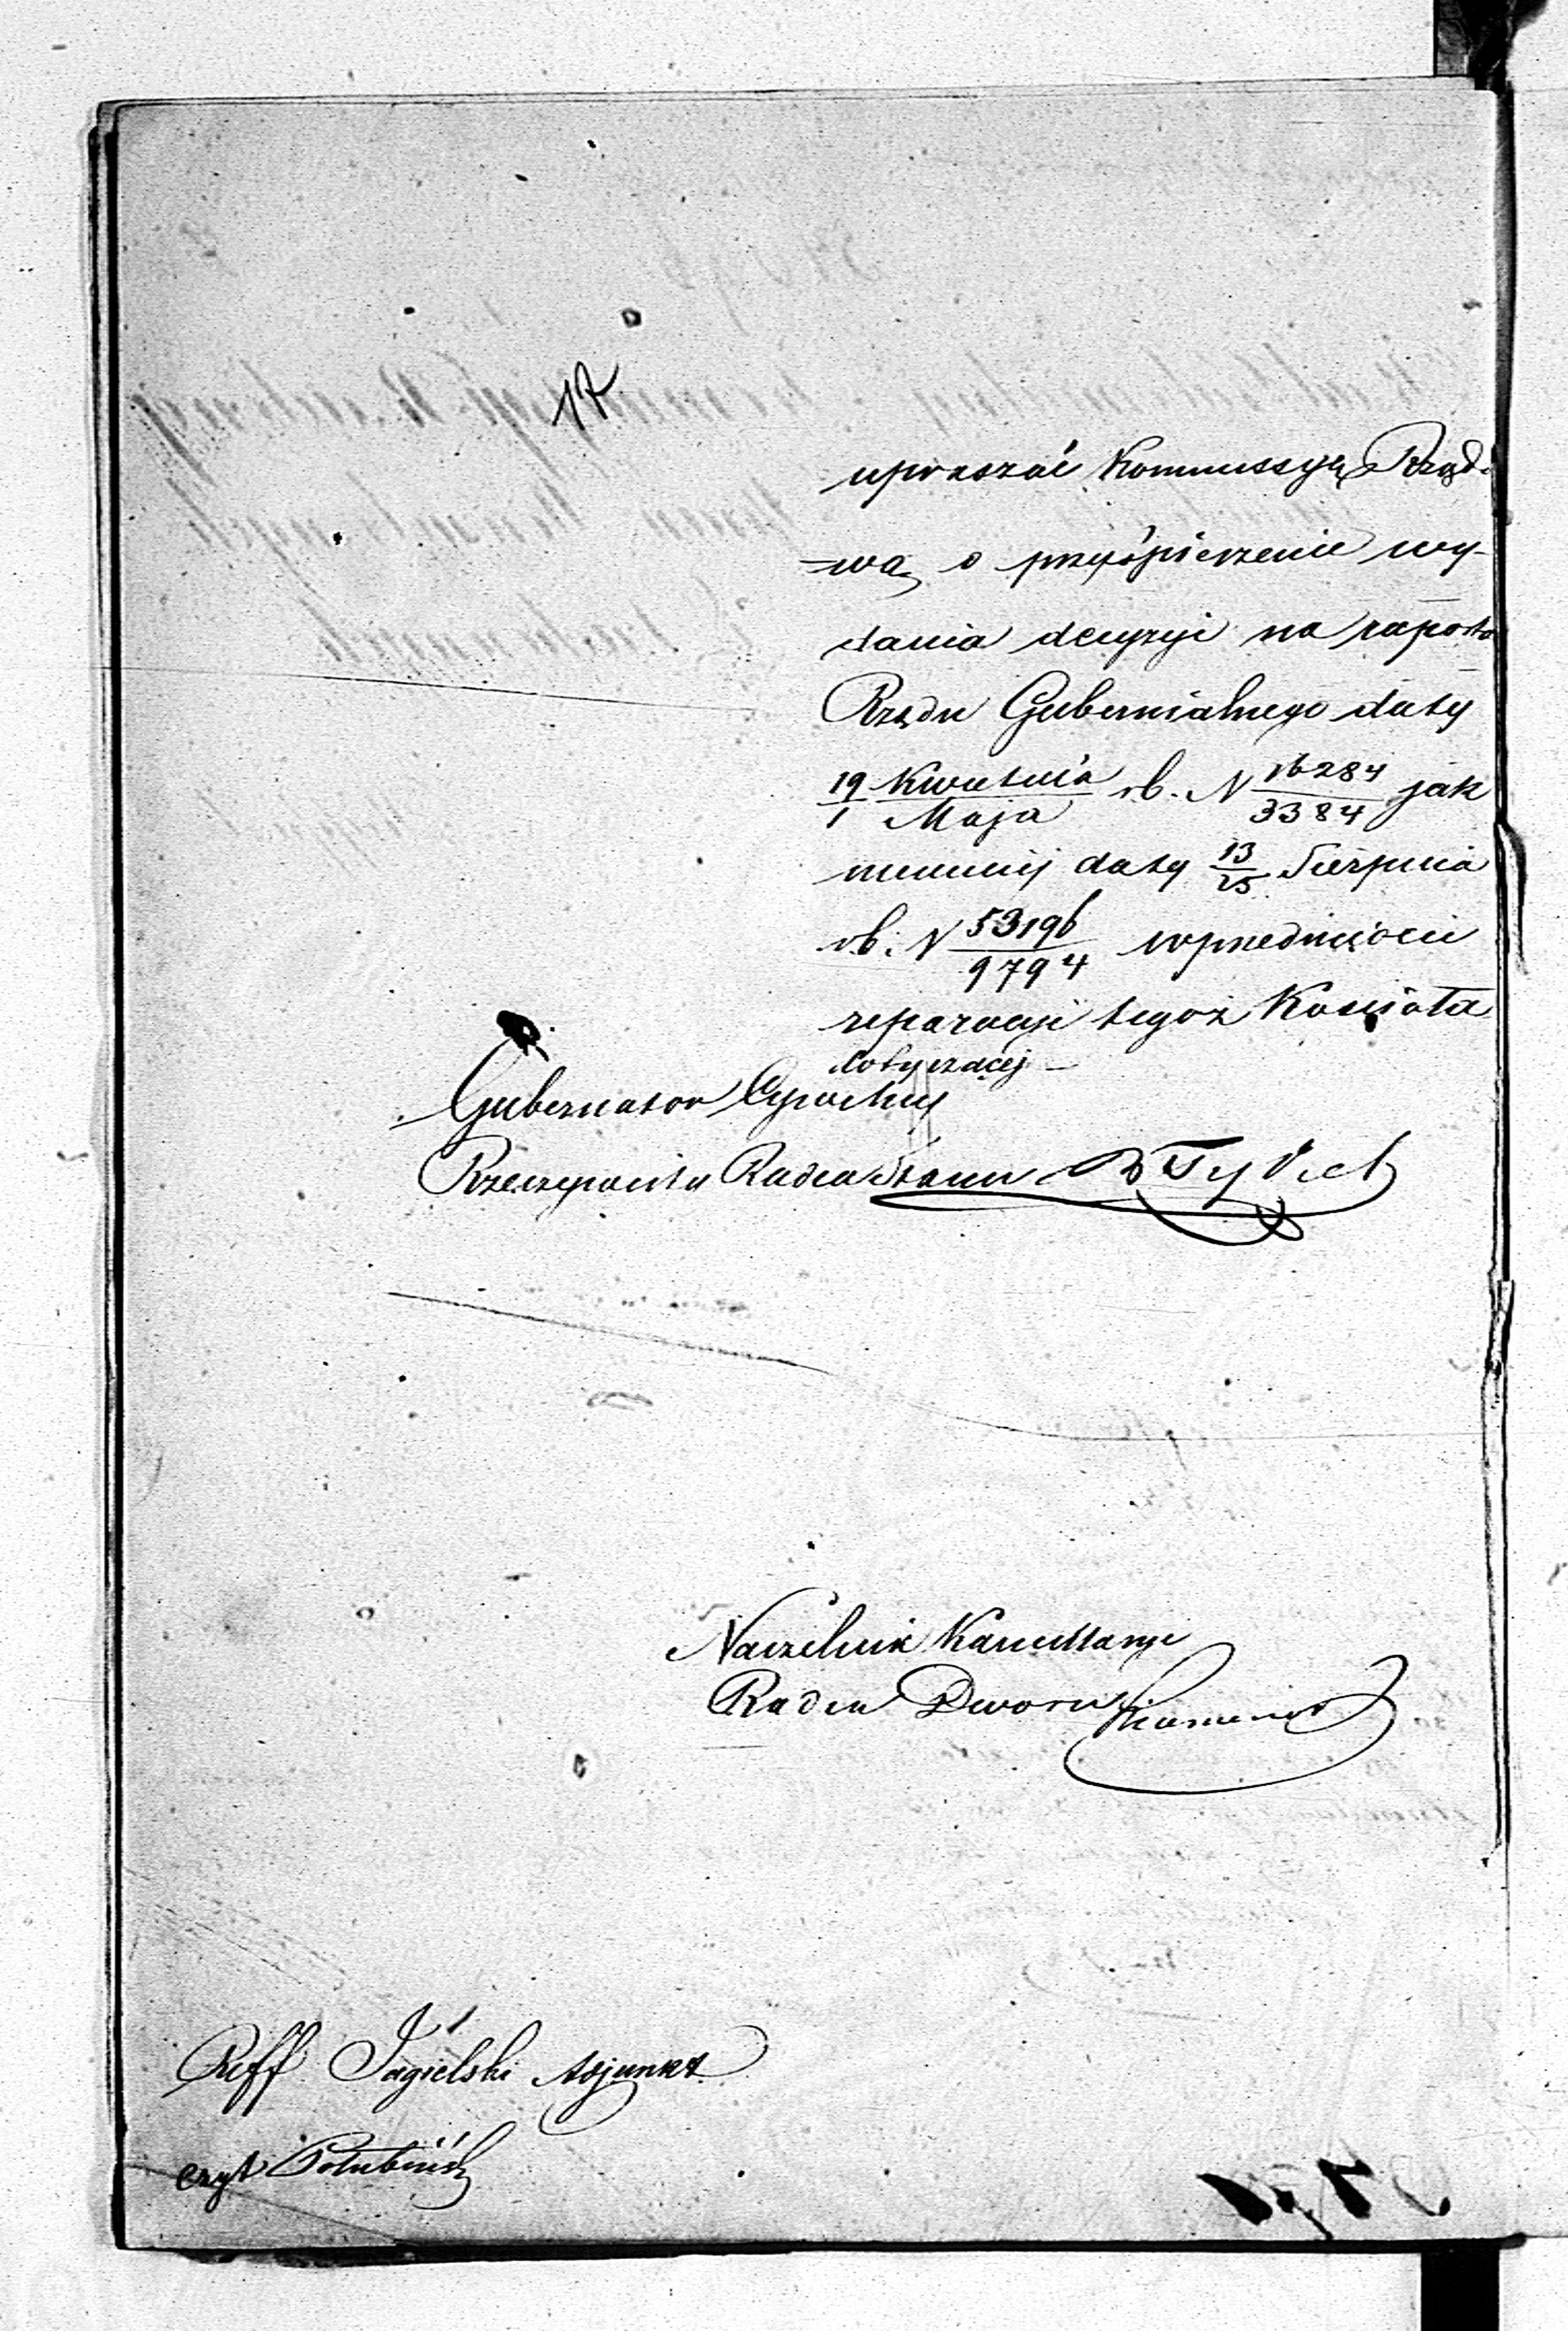 17
upraszać Kommissyą Rządo
=wą o przyśpieszenie wy-
dania decyzyi na raporta
Rządu Gubernialnego daty
19/1 Kwietnia/Maja rb. N 16284/3384 jak
niemniej daty 13/25 Sierpnia
rb. N 53196/9794 wprzedmiocie
reparacyi tegoż Kościoła
dotyczącej —
Gubernator Cywilny
Rzeczywisty Radca Stanu
Naczelnik Kancellaryi
Radca Dworu
Reff Jagielski Adjunkt
czyt Połubiński